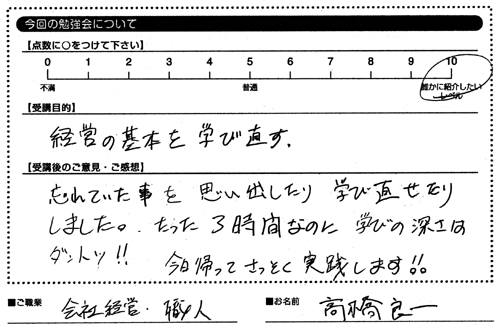 今回の勉強会について
【点数に○をつけて下さい】
0 1 2 3 4 5 6 7 8 9 10
不満 普通 誰かに紹介したいレベル
【受講目的】
経営の基本を学び直す.
【受講後のご意見・ご感想】
忘れていた事を思い出したり 学び直せたり
しました。たった3時間なのに 学びの深さは
ダントツ!! 今日帰ってさっそく実践します!!
■ご職業 会社経営・職人 ■お名前 高橋良一